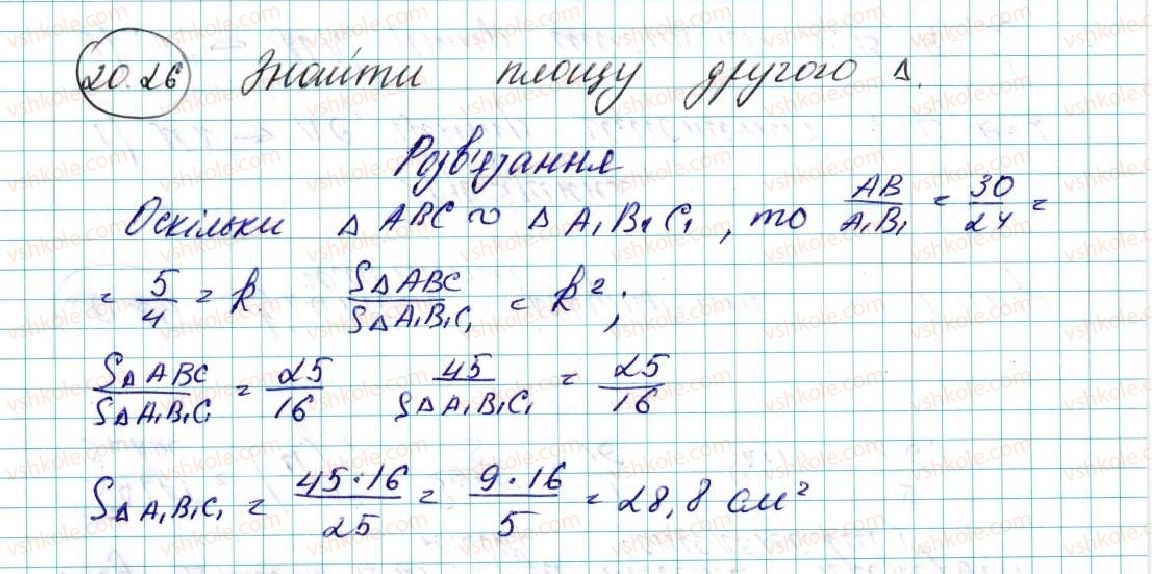 20.26 Знайти площу другого Δ.
Розв'язання
Оскільки Δ ABC ∾ Δ A₁B₁C₁, то AB/A₁B₁ = 30/24 =
= 5/4 = k. SΔABC/SΔA₁B₁C₁ = k²;
SΔABC/SΔA₁B₁C₁ = 25/16 45/SΔA₁B₁C₁ = 25/16
SΔA₁B₁C₁ = 45·16/25 = 9·16/5 = 28,8 см²